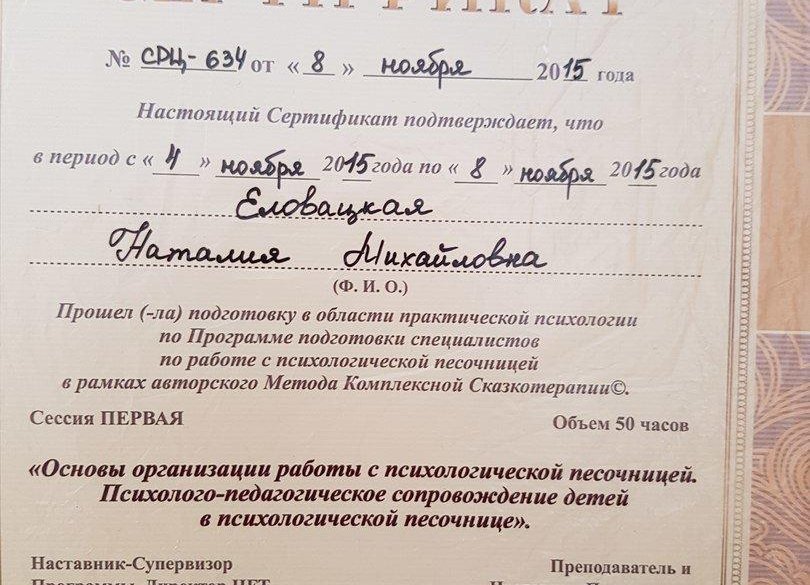 СЕРТИФИКАТ
№ СРЦ-634 от «8» ноября 2015 года
Настоящий Сертификат подтверждает, что
в период с «4» ноября 2015 года по «8» ноября 2015 года
Еловацкая
Наталия Михайловна
(Ф. И. О.)
Прошел (-ла) подготовку в области практической психологии
по Программе подготовки специалистов
по работе с психологической песочницей
в рамках авторского Метода Комплексной Сказкотерапии©.
Сессия ПЕРВАЯ Объем 50 часов
«Основы организации работы с психологической песочницей.
Психолого-педагогическое сопровождение детей
в психологической песочнице».
Наставник-Супервизор Преподаватель и
Программы, Директор